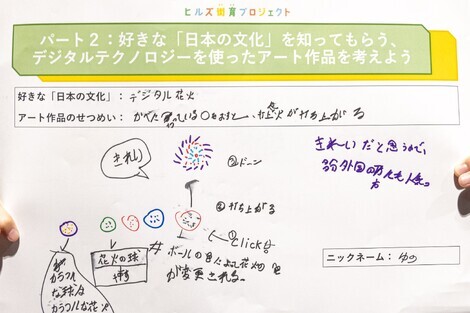 ヒルズ街育プロジェクト
パート2：好きな「日本の文化」を知ってもらう、
デジタルテクノロジーを使ったアート作品を考えよう
好きな「日本の文化」：デジタル花火
アート作品のせつめい：かべに っている○をおすと、花火が打ち上がる
きれい
②ドーン
打ち上がる
①Click!
きれーいだと思うので、
多分外国の方にも人気。
花火の球
ボールの色によって花火の色
が変更される。
カラフル
な球は
カラフルな花火
ニックネーム：ゆの